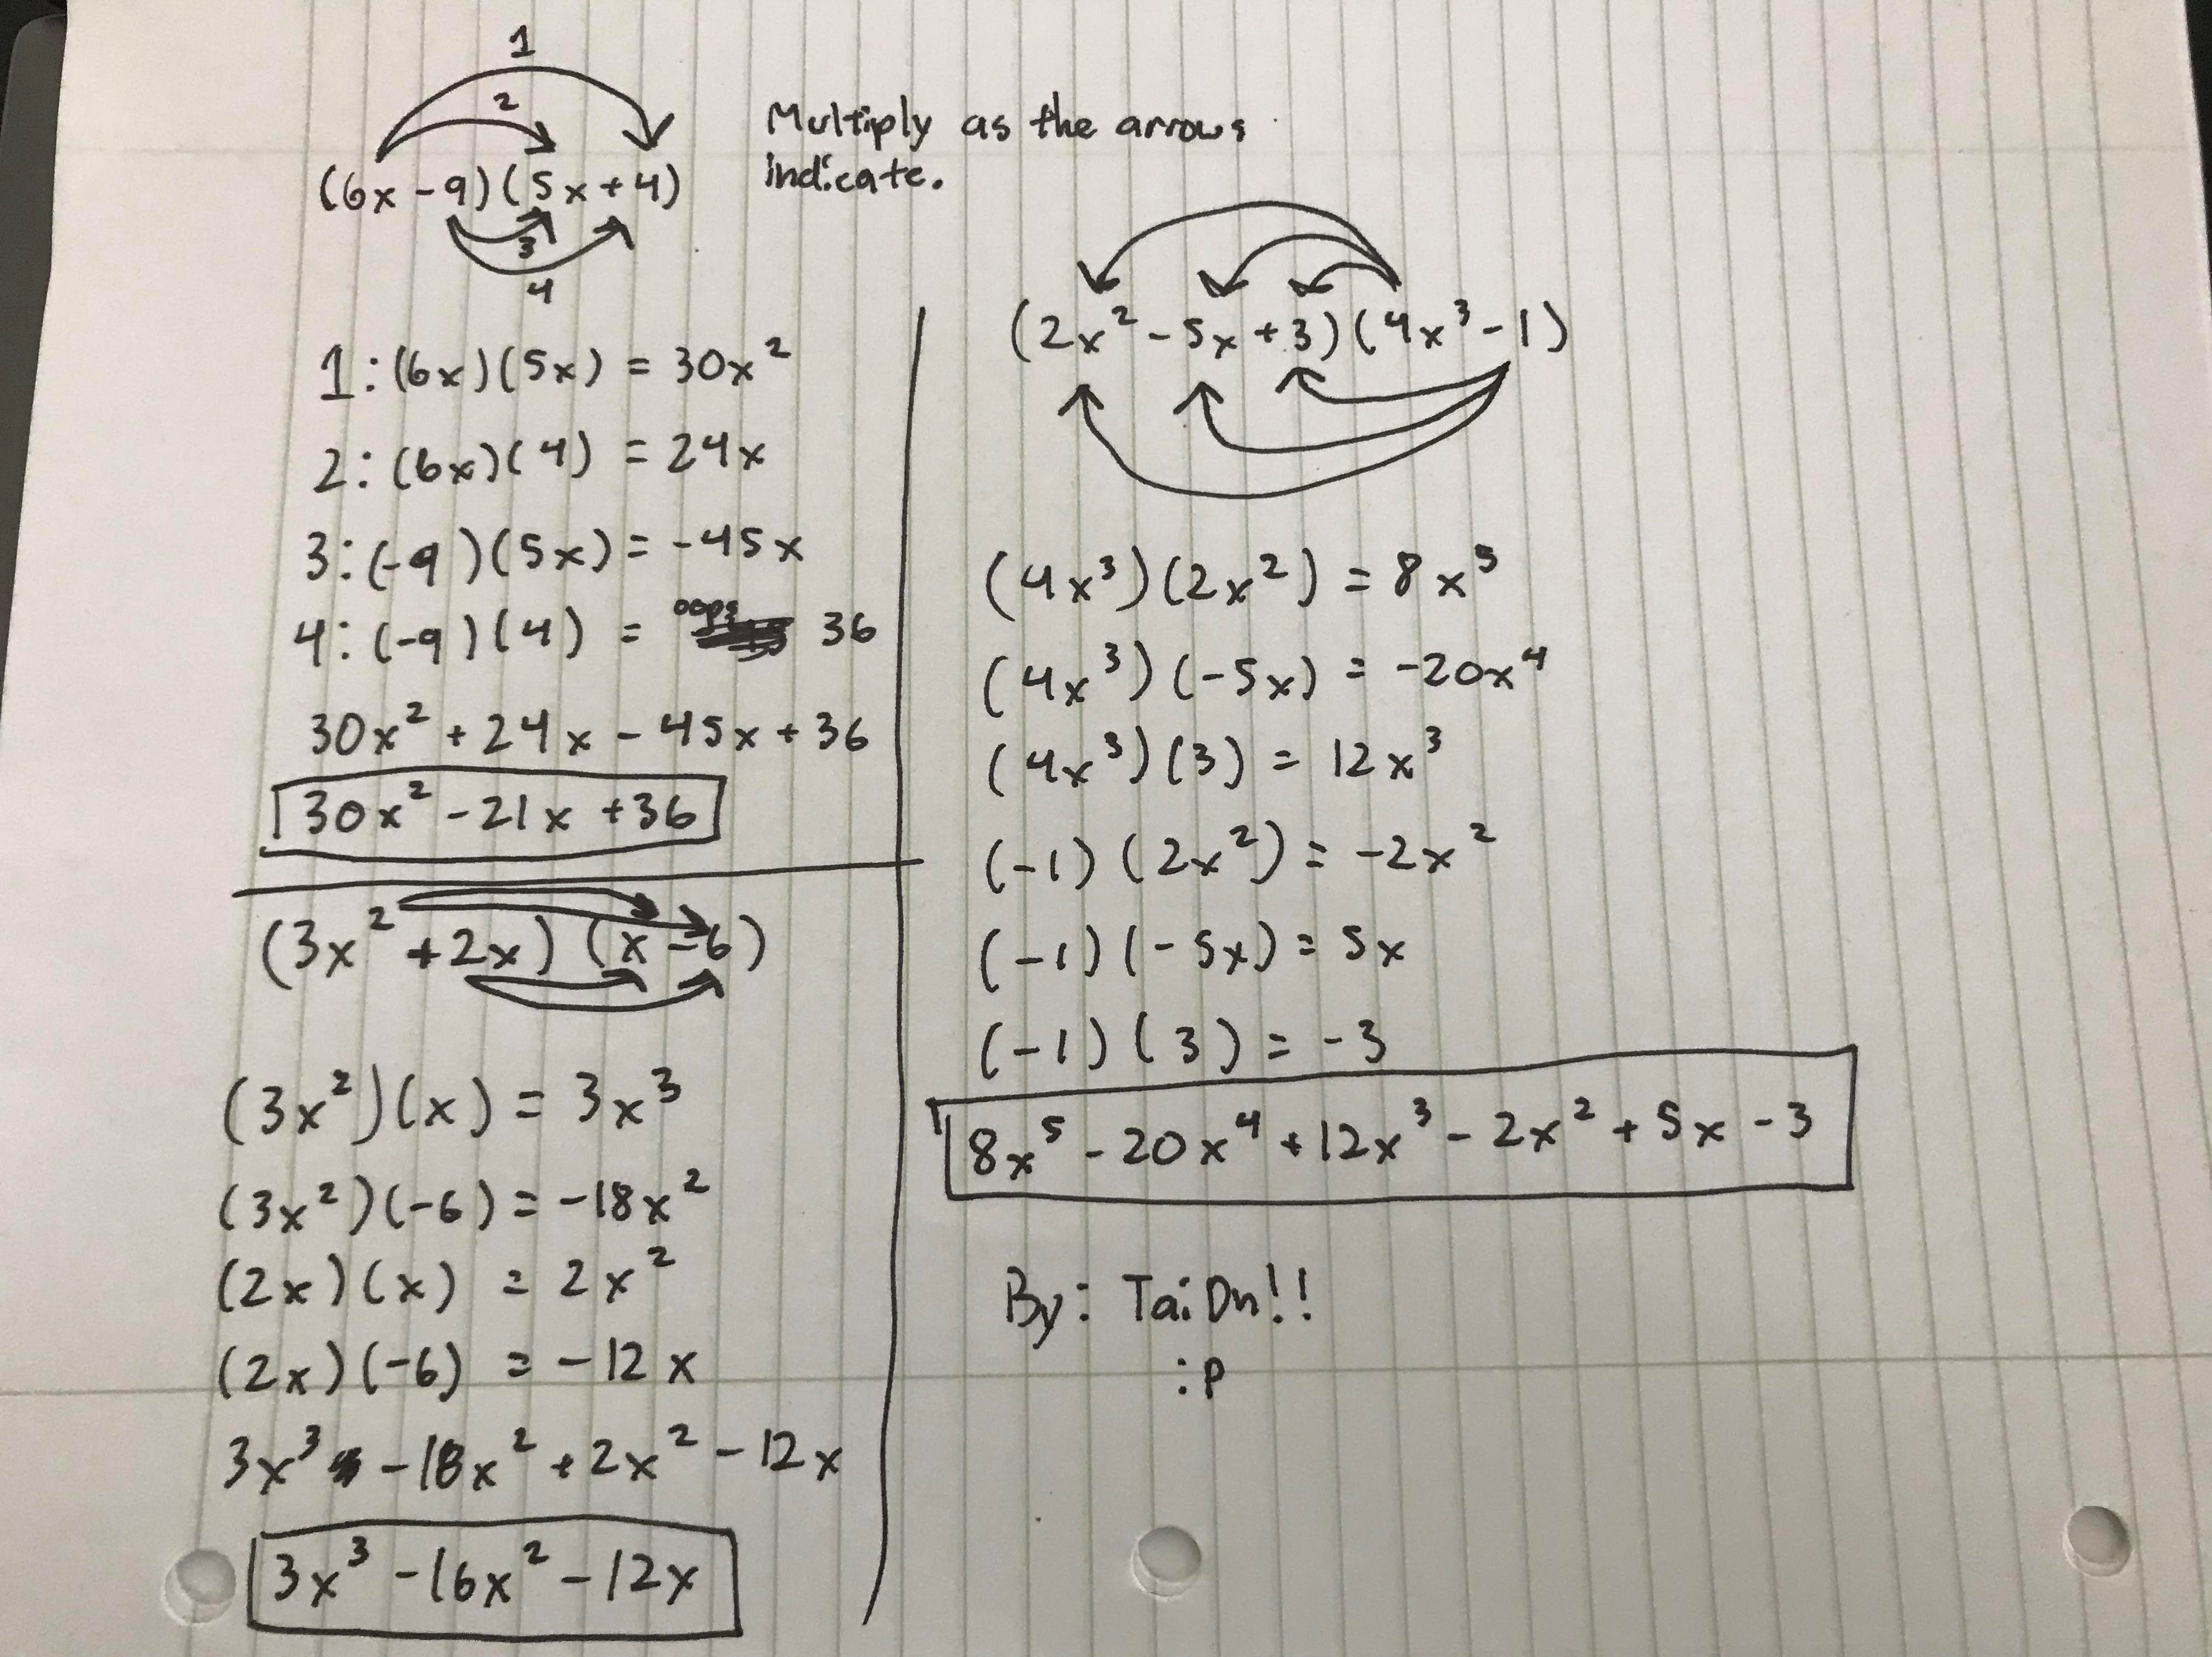 1
2
(6x - 9)(5x + 4)
3
4
Multiply as the arrows
indicate.
1: (6x)(5x) = 30x²
2: (6x)(4) = 24x
3: (-9)(5x) = -45x
4: (-9)(4) = oops 36
30x² + 24x - 45x + 36
30x² - 21x + 36
(3x² + 2x)(x - 6)
(3x²)(x) = 3x³
(3x²)(-6) = -18x²
(2x)(x) = 2x²
(2x)(-6) = -12x
3x³ - 18x² + 2x² - 12x
3x³ - 16x² - 12x
(2x² - 5x + 3)(4x³ - 1)
(4x³)(2x²) = 8x⁵
(4x³)(-5x) = -20x⁴
(4x³)(3) = 12x³
(-1)(2x²) = -2x²
(-1)(-5x) = 5x
(-1)(3) = -3
8x⁵ - 20x⁴ + 12x³ - 2x² + 5x - 3
By: TaiDn!!
:P